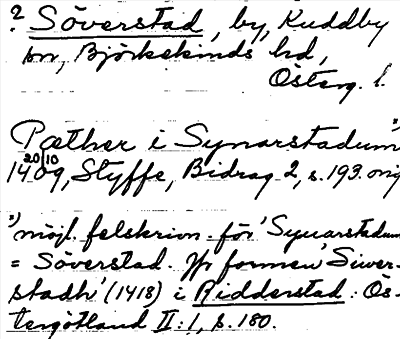 ? Söverstad, by, Kuddby
sn, Björkekinds hd,
Österg. l.
Pæther i Synarstadum"
20/10
1409, Styffe, Bidrag 2, s. 193. orig
"möjl. felskrivn. för 'Syuarstadum
= Söverstad. Jfr formen 'Siwer-
stadh' (1418) i Ridderstad: Ös-
tergötland II:1, s. 180.